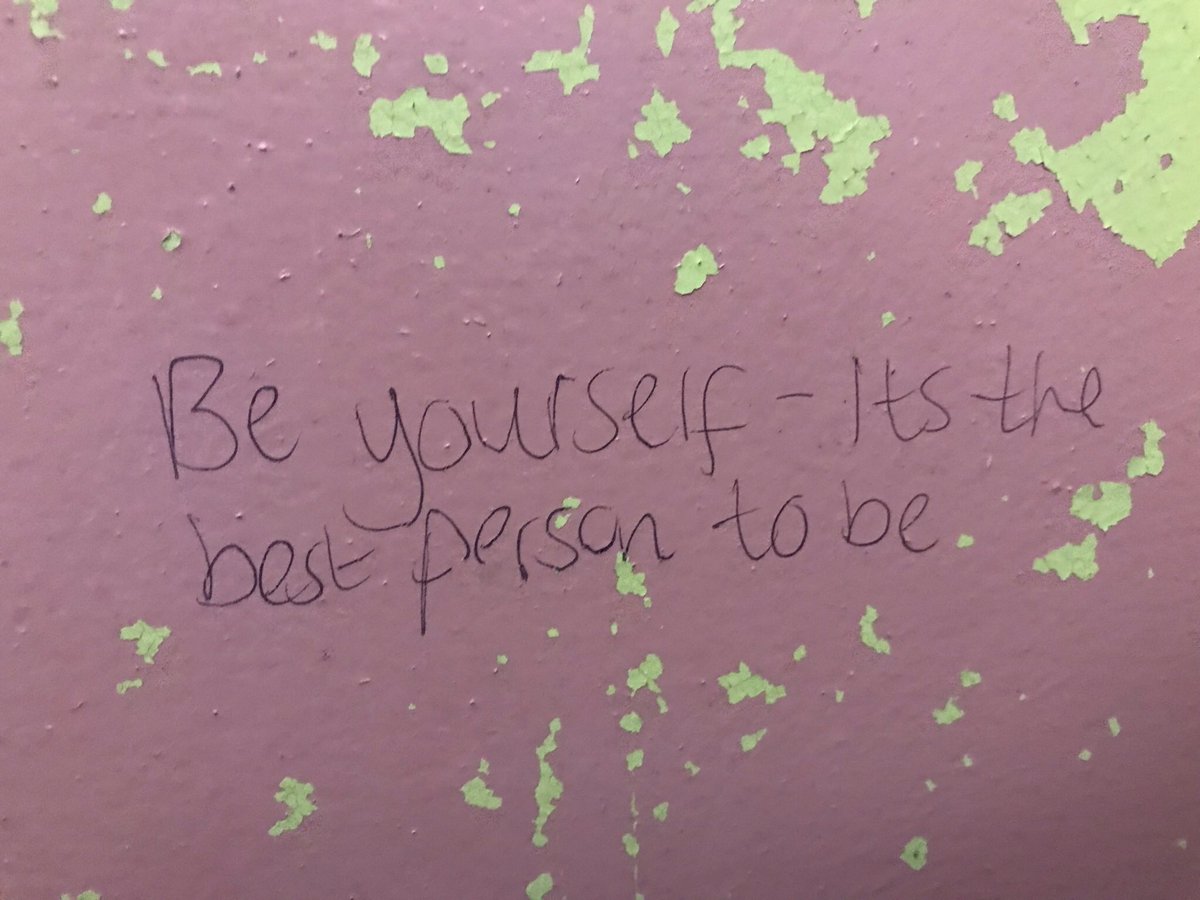 Be yourself - Its the
best person to be